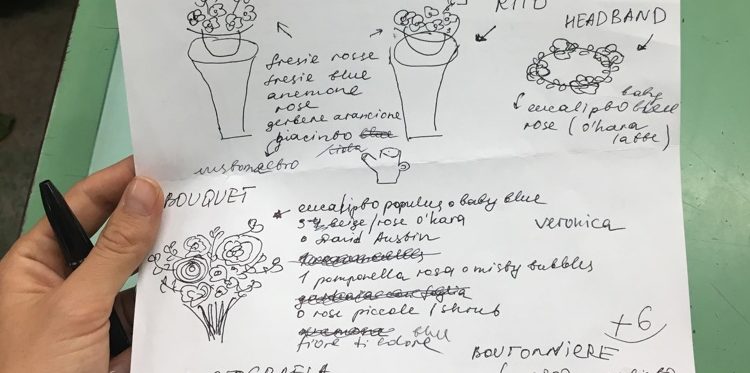 RITO
HEADBAND
fresie rosse
fresie blue
anemone
rose
gerbere arancione
giacinto blue
baby
eucalipto blue
rose (o'hara
latte)
BOUQUET
* eucalipto populus o baby blue
beige/rose o'hara
o David Austin
veronica
1 pomponella rosa o misty bubbles
o rose piccole / shrub
blue
fiore ti colore
+6
BOUTONNIERE